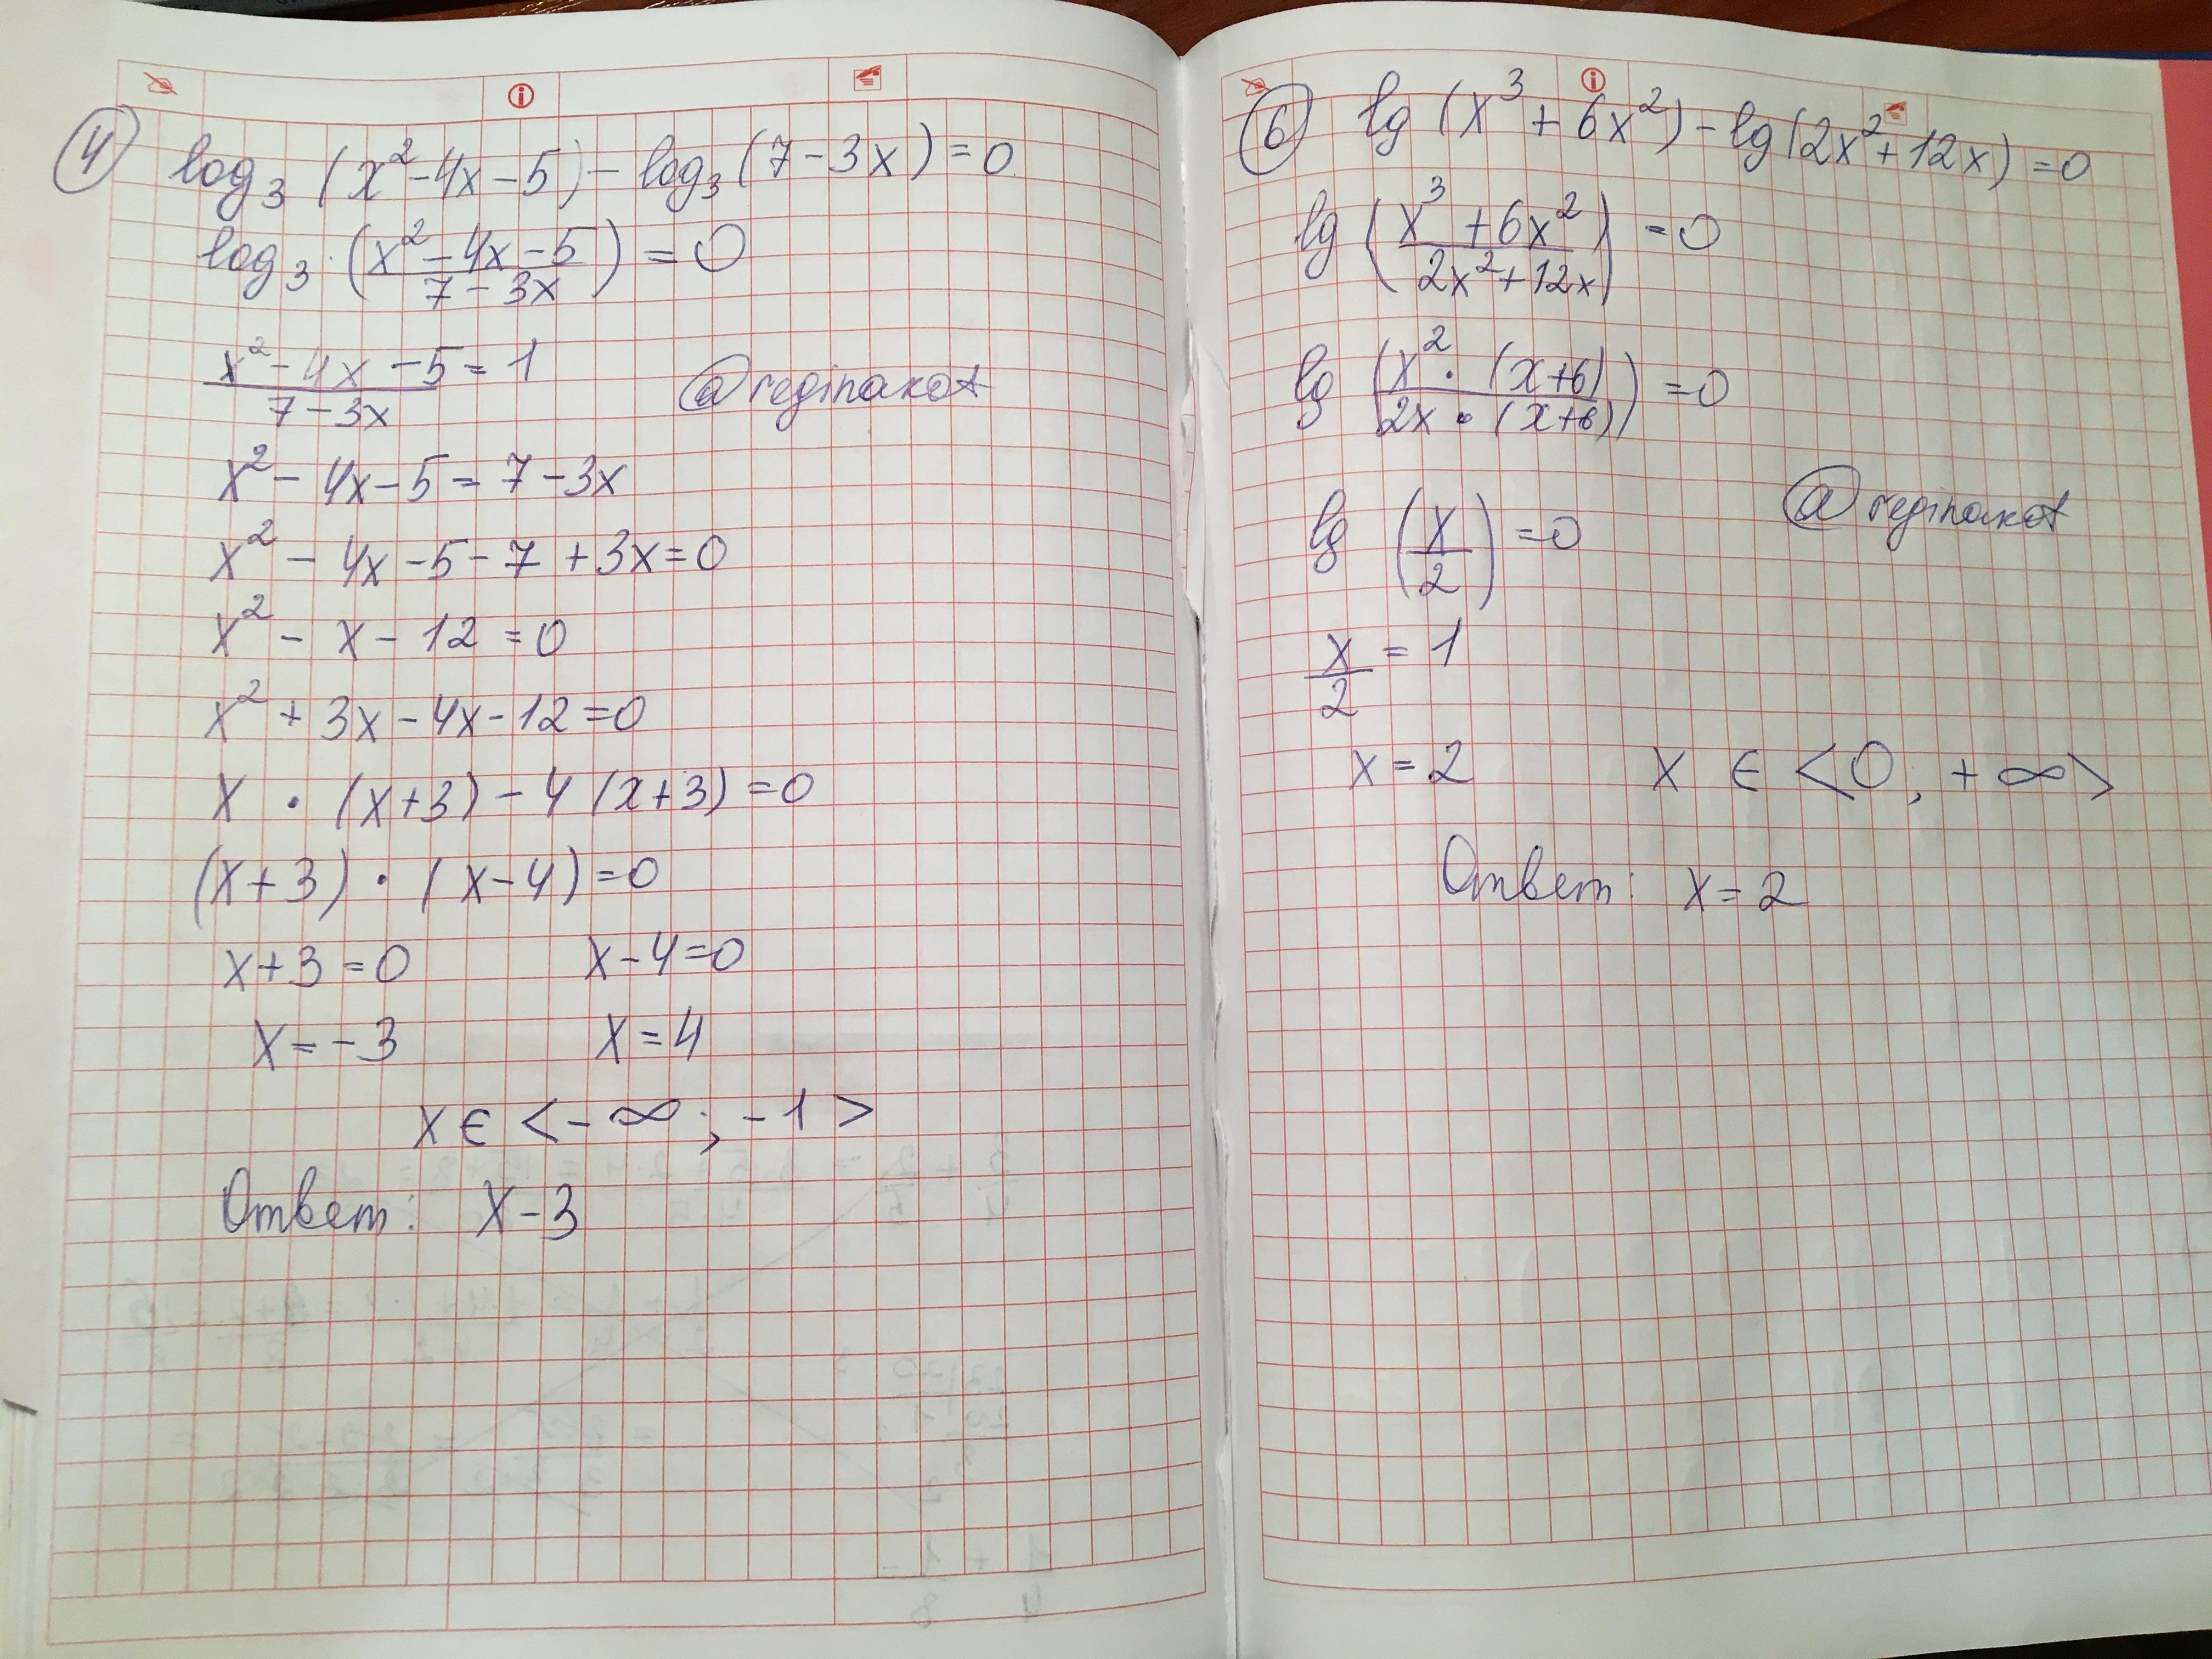 ④ log₃ (x²-4x-5) - log₃ (7-3x) = 0
log₃ (x²-4x-5 / 7-3x) = 0
x²-4x-5 / 7-3x = 1
@reginakot
x² - 4x - 5 = 7 - 3x
x² - 4x - 5 - 7 + 3x = 0
x² - x - 12 = 0
x² + 3x - 4x - 12 = 0
x · (x+3) - 4 (x+3) = 0
(x+3) · (x-4) = 0
x+3 = 0 x-4=0
x = -3 x = 4
x ∈ <-∞; -1>
Ответ: x-3
⑥ lg (x³ + 6x²) - lg (2x² + 12x) = 0
lg (x³ + 6x² / 2x² + 12x) = 0
lg (x² · (x+6) / 2x · (x+6)) = 0
lg (x / 2) = 0
@reginakot
x / 2 = 1
x = 2 x ∈ <0; +∞>
Ответ: x = 2